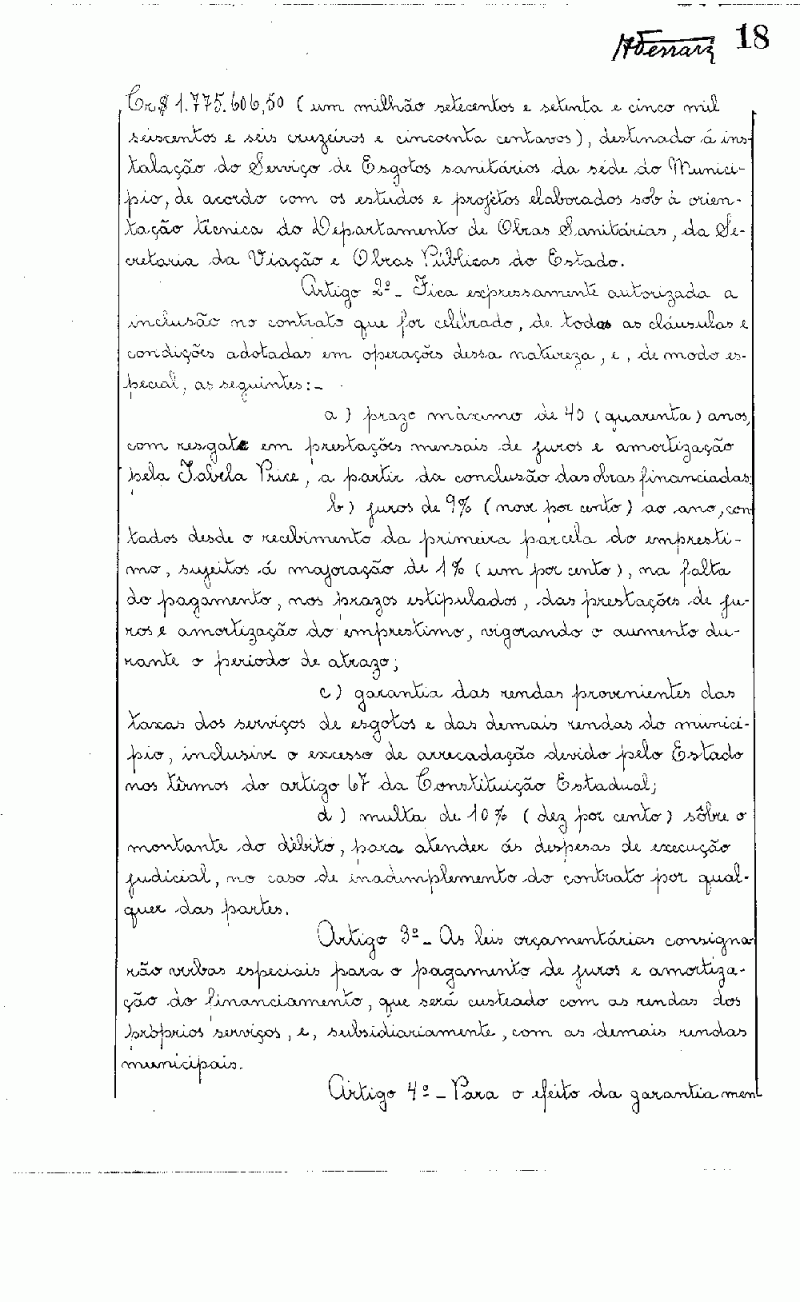 AFerraz 18
Cr$ 1.775.606,50 (um milhão setecentos e setenta e cinco mil
seiscentos e seis cruzeiros e cincoenta centavos), destinado á ins-
talação do Serviço de Esgotos sanitários da séde do Municí-
pio, de acordo com os estudos e projetos elaborados sob á orien-
tação técnica do Departamento de Obras Sanitárias, da Se-
cretaria da Viação e Obras Públicas do Estado.
Artigo 2º - Fica expressamente autorizada a
inclusão no contrato que for celebrado, de todas as cláusulas e
condições adotadas em operações dessa natureza, e, de modo es-
pecial, as seguintes:-
a) prazo máximo de 40 (quarenta) anos,
com resgate em prestações mensais de juros e amortização
pela Tabela Price, a partir da conclusão das obras financiadas;
b) juros de 9% (nove por cento) ao ano, con
tados desde o recebimento da primeira parcela do emprésti-
mo, sujeitos á majoração de 1% (um por cento), na falta
do pagamento, nos prazos estipulados, das prestações de ju-
ros e amortização do empréstimo, vigorando o aumento du-
rante o período de atrazo;
c) garantia das rendas provenientes das
taxas dos serviços de esgotos e das demais rendas do municí-
pio, inclusive o excesso de arrecadação devido pelo Estado
nos têrmos do artigo 67 da Constituição Estadual;
d) multa de 10% (dez por cento) sôbre o
montante do débito, para atender ás despesas de execução
judicial, no caso de inadimplemento do contrato por qual-
quer das partes.
Artigo 3º - As leis orçamentárias consigna
rão verbas especiais para o pagamento de juros e amortiza-
ção do financiamento, que será custeado com as rendas dos
próprios serviços, e, subsidiariamente, com as demais rendas
municipais.
Artigo 4º - Para o efeito da garantia men